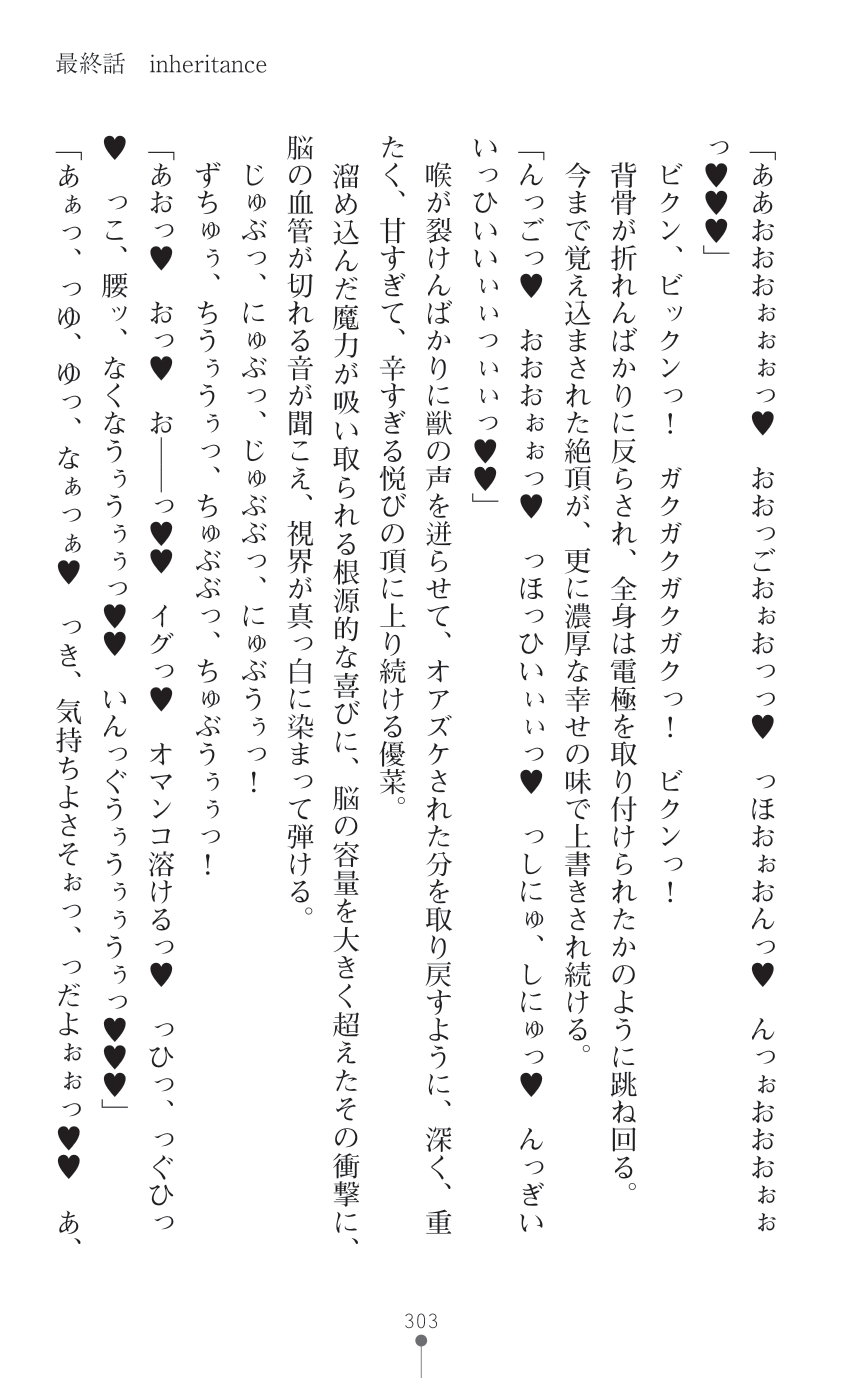 最終話　inheritance
「ああおおおぉぉぉっ♥　おおっごおぉおっっ♥　っほおぉおんっ♥　んっぉおおおぉぉ
っ♥♥♥」
　ビクン、ビックンっ！　ガクガクガクガクっ！　ビクンっ！
　背骨が折れんばかりに反らされ、全身は電極を取り付けられたかのように跳ね回る。
　今まで覚え込まされた絶頂が、更に濃厚な幸せの味で上書きされ続ける。
「んっごっ♥　おおおぉぉっ♥　っほっひいぃぃっ♥　っしにゅ、しにゅっ♥　んっぎい
いっひいいぃぃっぃぃっ♥♥」
　喉が裂けんばかりに獣の声を迸らせて、オアズケされた分を取り戻すように、深く、重
たく、甘すぎて、辛すぎる悦びの頂に上り続ける優菜。
　溜め込んだ魔力が吸い取られる根源的な喜びに、脳の容量を大きく超えたその衝撃に、
脳の血管が切れる音が聞こえ、視界が真っ白に染まって弾ける。
　じゅぶっ、にゅぶっ、じゅぶぶっ、にゅぶうぅっ！
　ずちゅぅ、ちうぅうぅっ、ちゅぶぶっ、ちゅぶうぅぅっ！
「あおっ♥　おっ♥　お――っ♥♥　イグっ♥　オマンコ溶けるっ♥　っひっ、っぐひっ
♥　っこ、腰ッ、なくなうぅうぅぅっ♥♥　いんっぐうぅうぅぅうぅっ♥♥♥」
「あぁっ、っゆ、ゆっ、なぁっぁ♥　っき、気持ちよさそぉっ、っだよぉぉっ♥♥　あ、
303